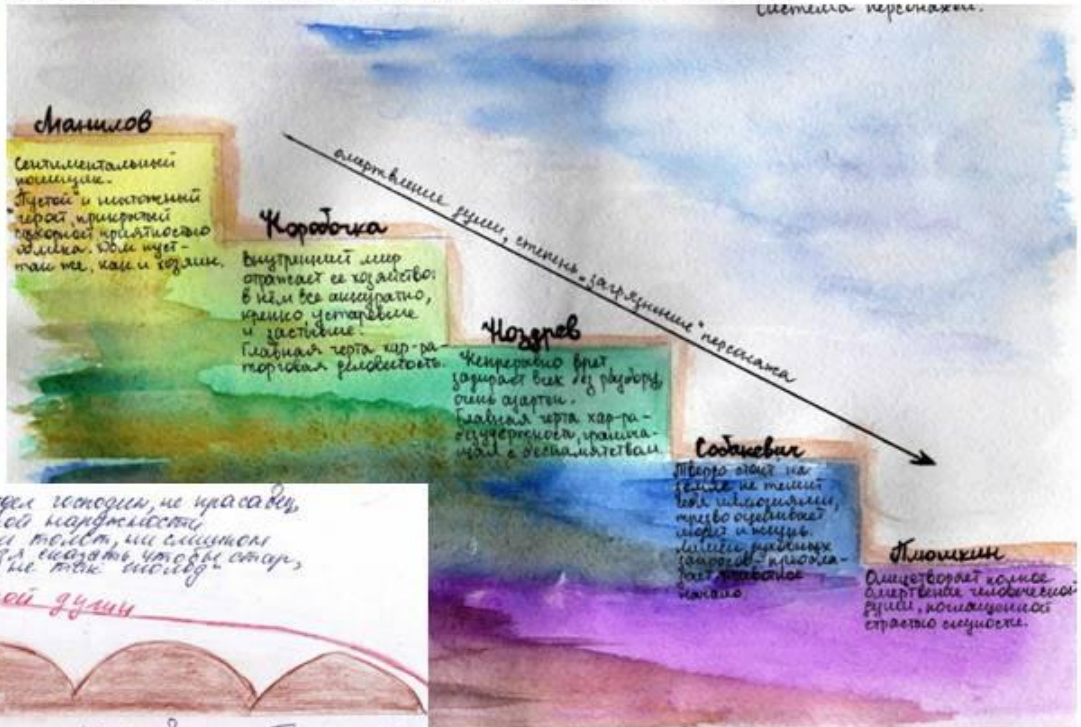 Система персонажей.
Манилов
Сентиментальный
помещик.
"Пустой" и ничтожный
герой, прикрытый
сахарной приятностью
облика. Дом пуст-
так же, как и хозяин.
омертвление души, степень "загрязнение" персонажа
Коробочка
Внутренний мир
отражает ее хозяйство:
в нём все аккуратно,
крепко устаревшие
и застывшие.
Главная черта хар-ра-
торговая деловитость.
Ноздрев
Непрерывно врет
задирает всех без разбору,
очень азартен.
Главная черта хар-ра-
безудержность, гранича-
щая с беспамятством
Собакевич
Твердо стоит на
земле не тешит
себя иллюзиями,
трезво оценивает
людей и жизнь.
духовных
начало.
Плюшкин
Олицетворяет полное
омертвение человеческой
души, поглощенной
страстью скупости.
дел господин, не красавец,
ой наружности
и толст, ни слишком
зя сказать чтобы стар,
не так молод"
ой души